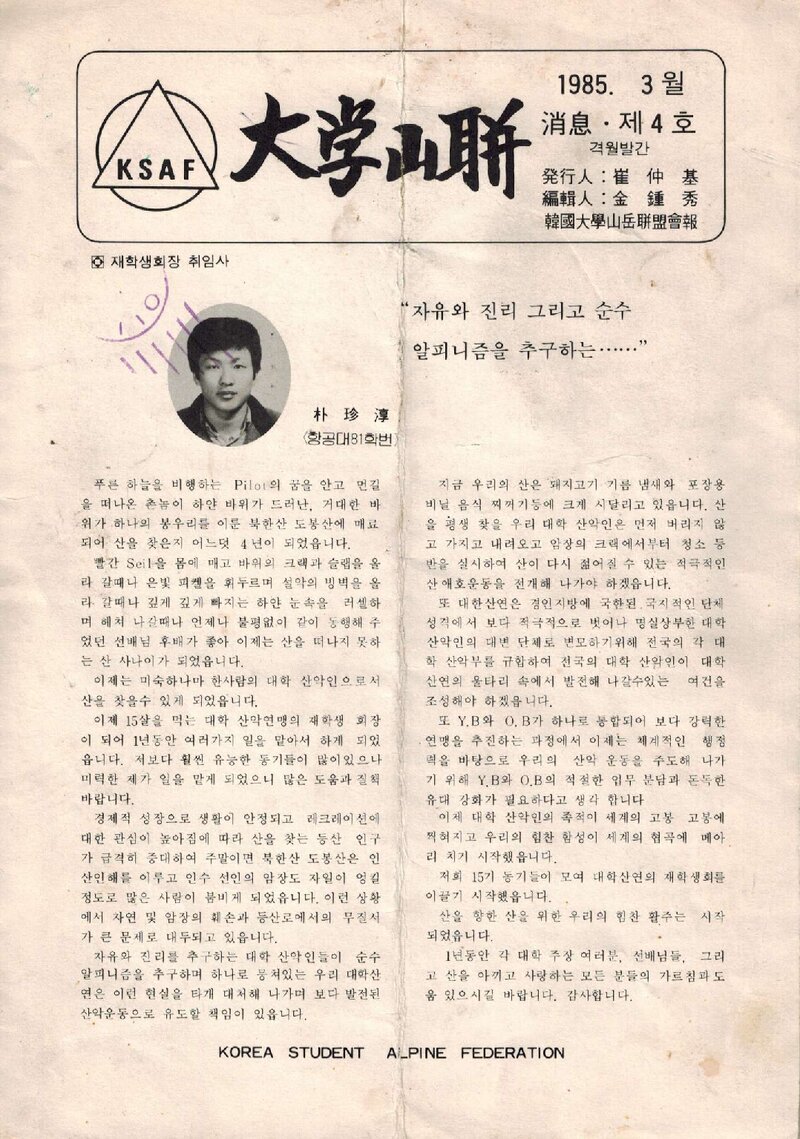 KSAF
大学山联
1985. 3월
消息·제4호
격월발간
発行人：崔仲基
編輯人：金鍾秀
韓國大學山岳聯盟會報
재학생회장 취임사
“자유와 진리 그리고 순수
알피니즘을 추구하는……”
朴珍淳
(항공대81학번)
푸른 하늘을 비행하는 Pilot의 꿈을 안고 먼길
을 떠나온 촌놈이 하얀 바위가 드러난, 거대한 바
위가 하나의 봉우리를 이룬 북한산 도봉산에 매료
되어 산을 찾은지 어느덧 4년이 되었읍니다.
빨간 Seil을 몸에 매고 바위의 크랙과 슬랩을 올
라 갈때나 은빛 피켈을 휘두르며 설악의 빙벽을 올
라 갈때나 깊게 깊게 빠지는 하얀 눈속을 러셀하
며 헤쳐 나갈때나 언제나 불평없이 같이 동행해 주
었던 선배님 후배가 좋아 이제는 산을 떠나지 못하
는 산 사나이가 되었읍니다.
이제는 미숙하나마 한사람의 대학 산악인으로서
산을 찾을수 있게 되었읍니다.
이제 15살을 먹는 대학 산악연맹의 재학생 회장
이 되어 1년동안 여러가지 일을 맡아서 하게 되었
읍니다. 저보다 훨씬 유능한 동기들이 많이있으나
미력한 제가 일을 맡게 되었으니 많은 도움과 질책
바랍니다.
경제적 성장으로 생활이 안정되고 레크레이션에
대한 관심이 높아짐에 따라 산을 찾는 등산 인구
가 급격히 증대하여 주말이면 북한산 도봉산은 인
산인해를 이루고 인수 선인의 암장도 자일이 엉킬
정도로 많은 사람이 붐비게 되었읍니다. 이런 상황
에서 자연 및 암장의 훼손과 등산로에서의 무질서
가 큰 문제로 대두되고 있읍니다.
자유와 진리를 추구하는 대학 산악인들이 순수
알피니즘을 추구하며 하나로 뭉쳐있는 우리 대학산
연은 이런 현실을 타개 대처해 나가며 보다 발전된
산악운동으로 유도할 책임이 있읍니다.
지금 우리의 산은 돼지고기 기름 냄새와 포장용
비닐 음식 찌꺼기등에 크게 시달리고 있읍니다. 산
을 평생 찾을 우리 대학 산악인은 먼저 버리지 않
고 가지고 내려오고 암장의 크랙에서부터 청소 등
반을 실시하여 산이 다시 젊어질 수 있는 적극적인
산 애호운동을 전개해 나가야 하겠읍니다.
또 대한산연은 경인지방에 국한된 국지적인 단체
성격에서 보다 적극적으로 벗어나 명실상부한 대학
산악인의 대변 단체로 변모하기위해 전국의 각 대
학 산악부를 규합하여 전국의 대학 산악인이 대학
산연의 울타리 속에서 발전해 나갈수있는 여건을
조성해야 하겠읍니다.
또 Y.B와 O.B가 하나로 통합되어 보다 강력한
연맹을 추진하는 과정에서 이제는 체계적인 행정
력을 바탕으로 우리의 산악 운동을 주도해 나가
기 위해 Y.B와 O.B의 적절한 업무 분담과 돈독한
유대 강화가 필요하다고 생각 합니다
이제 대학 산악인의 족적이 세계의 고봉 고봉에
찍혀지고 우리의 힘찬 함성이 세계의 협곡에 메아
리 치기 시작했읍니다.
저희 15기 동기들이 모여 대학산연의 재학생회를
이끌기 시작했읍니다.
산을 향한 산을 위한 우리의 힘찬 활주는 시작
되었읍니다.
1년동안 각 대학 주장 여러분, 선배님들, 그리
고 산을 아끼고 사랑하는 모든 분들의 가르침과 도
움 있으시길 바랍니다. 감사합니다.
KOREA STUDENT ALPINE FEDERATION